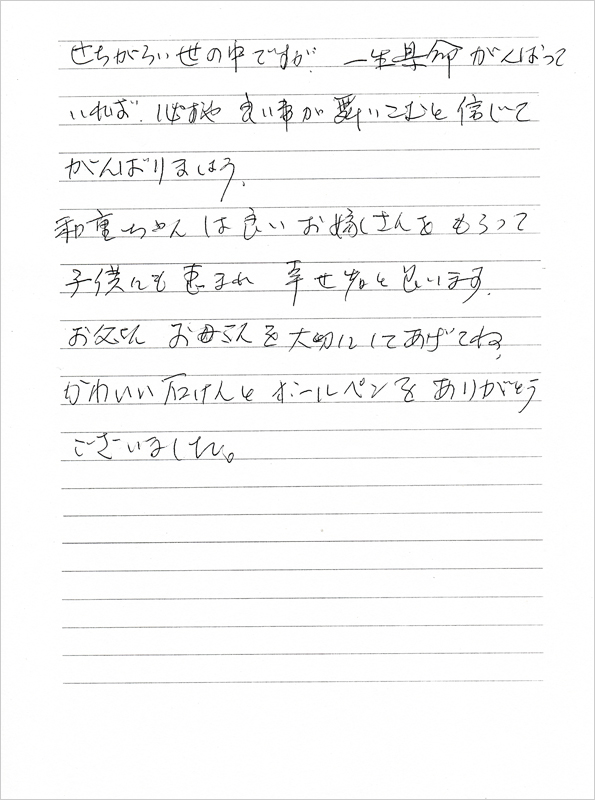 せちがらい世の中ですが、一生懸命がんばって
いれば、必ずや良い事が舞いこむと信じて
がんばりましょう。
和重ちゃんは良いお嫁さんをもらって
子供にも恵まれ 幸せ者と思います。
お父さん お母さんを大切にしてあげてね。
かわいい石けんとボールペンをありがとう
ございました。